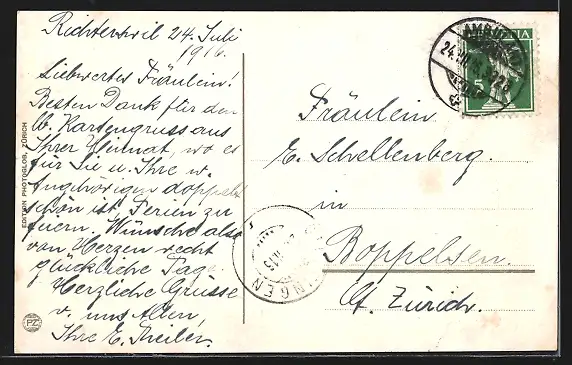 Richterswil 24. Juli
1916.
Liebwertes Fräulein!
Besten Dank für den
lb. Kartengruss aus
Ihrer Heimat, wo es
für Sie u. Ihre w.
Angehörigen doppelt
schön ist, Ferien zu
feiern. Wünsche also
von Herzen recht
glückliche Tage.
Herzliche Grüsse
v. uns Allen,
Ihre E. Theiler.
EDITION PHOTOGLOB, ZÜRICH
PZ
HELVETIA
AMBULANT
5
INGEN
Fräulein
E. Schellenberg.
in
Boppelsen.
Ct. Zürich.